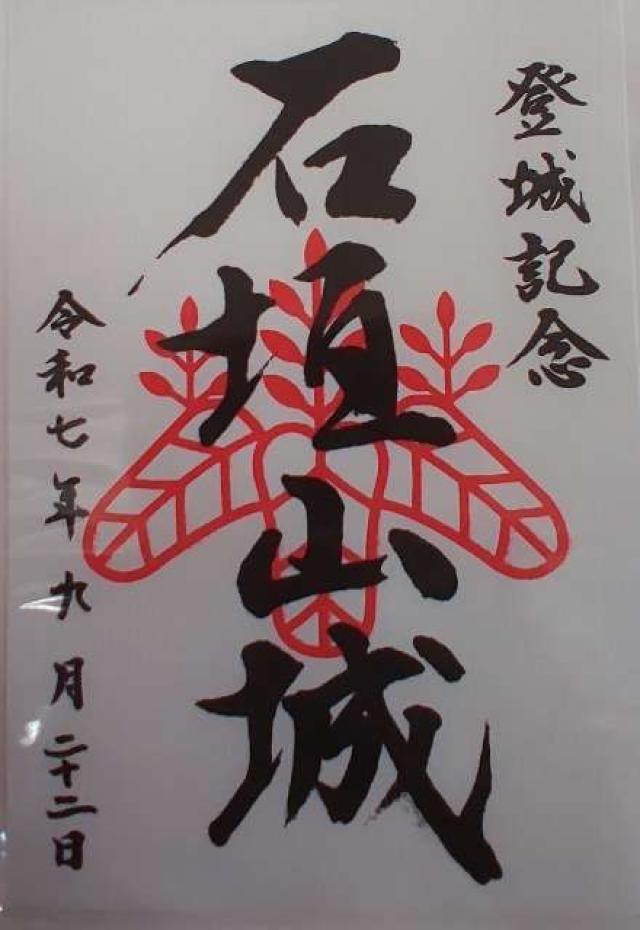 登城記念
石垣山城
令和七年九月二十二日